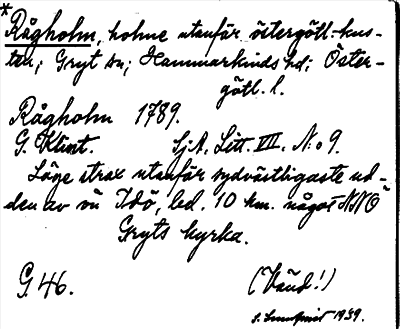 *
Rågholm, holme utanför östergötl.-kus-
ten; Gryt sn; Hammarkinds hd; Öster-
götl. l.
Rågholm 1789.
G. Klint. Sj.A. Litt. VII. N:o 9.
Läge strax utanför sydvästligaste ud-
den av ön Idö, bel. 10 km. något NNO
Gryts kyrka.
G. 46. (Vänd!)
1939.